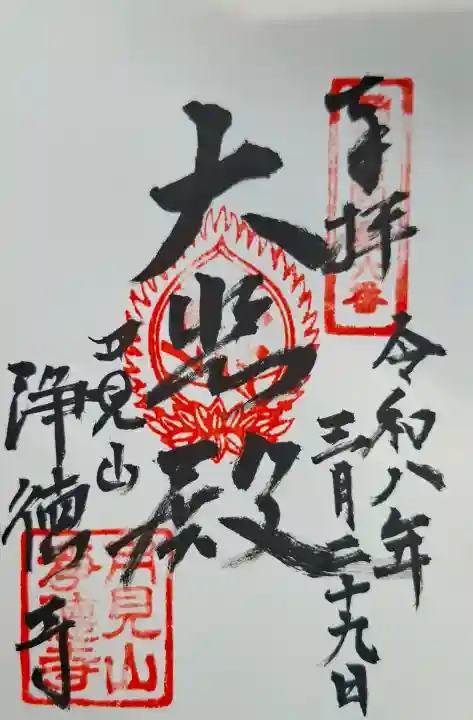 奉拝
令和八年
三月二十九日
大悲殿
月見山
浄徳寺
番
月見山